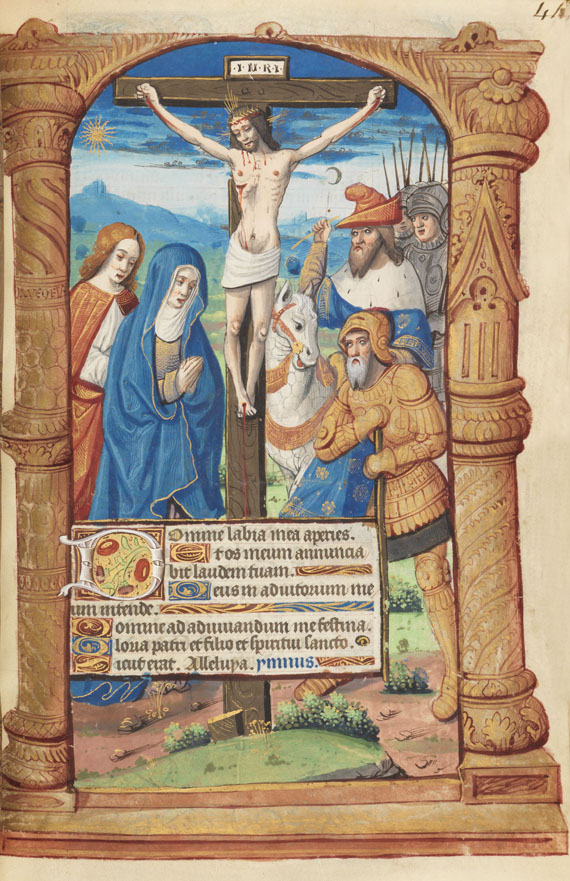 44
·I·N·R·I·
Domine labia mea aperies.
Et os meum annuncia
bit laudem tuam.
Deus in adiutorium me
um intende.
Domine ad adiuuandum me festina.
Gloria patri et filio et spiritui sancto.
Sicut erat. Alleluya. ymnus.